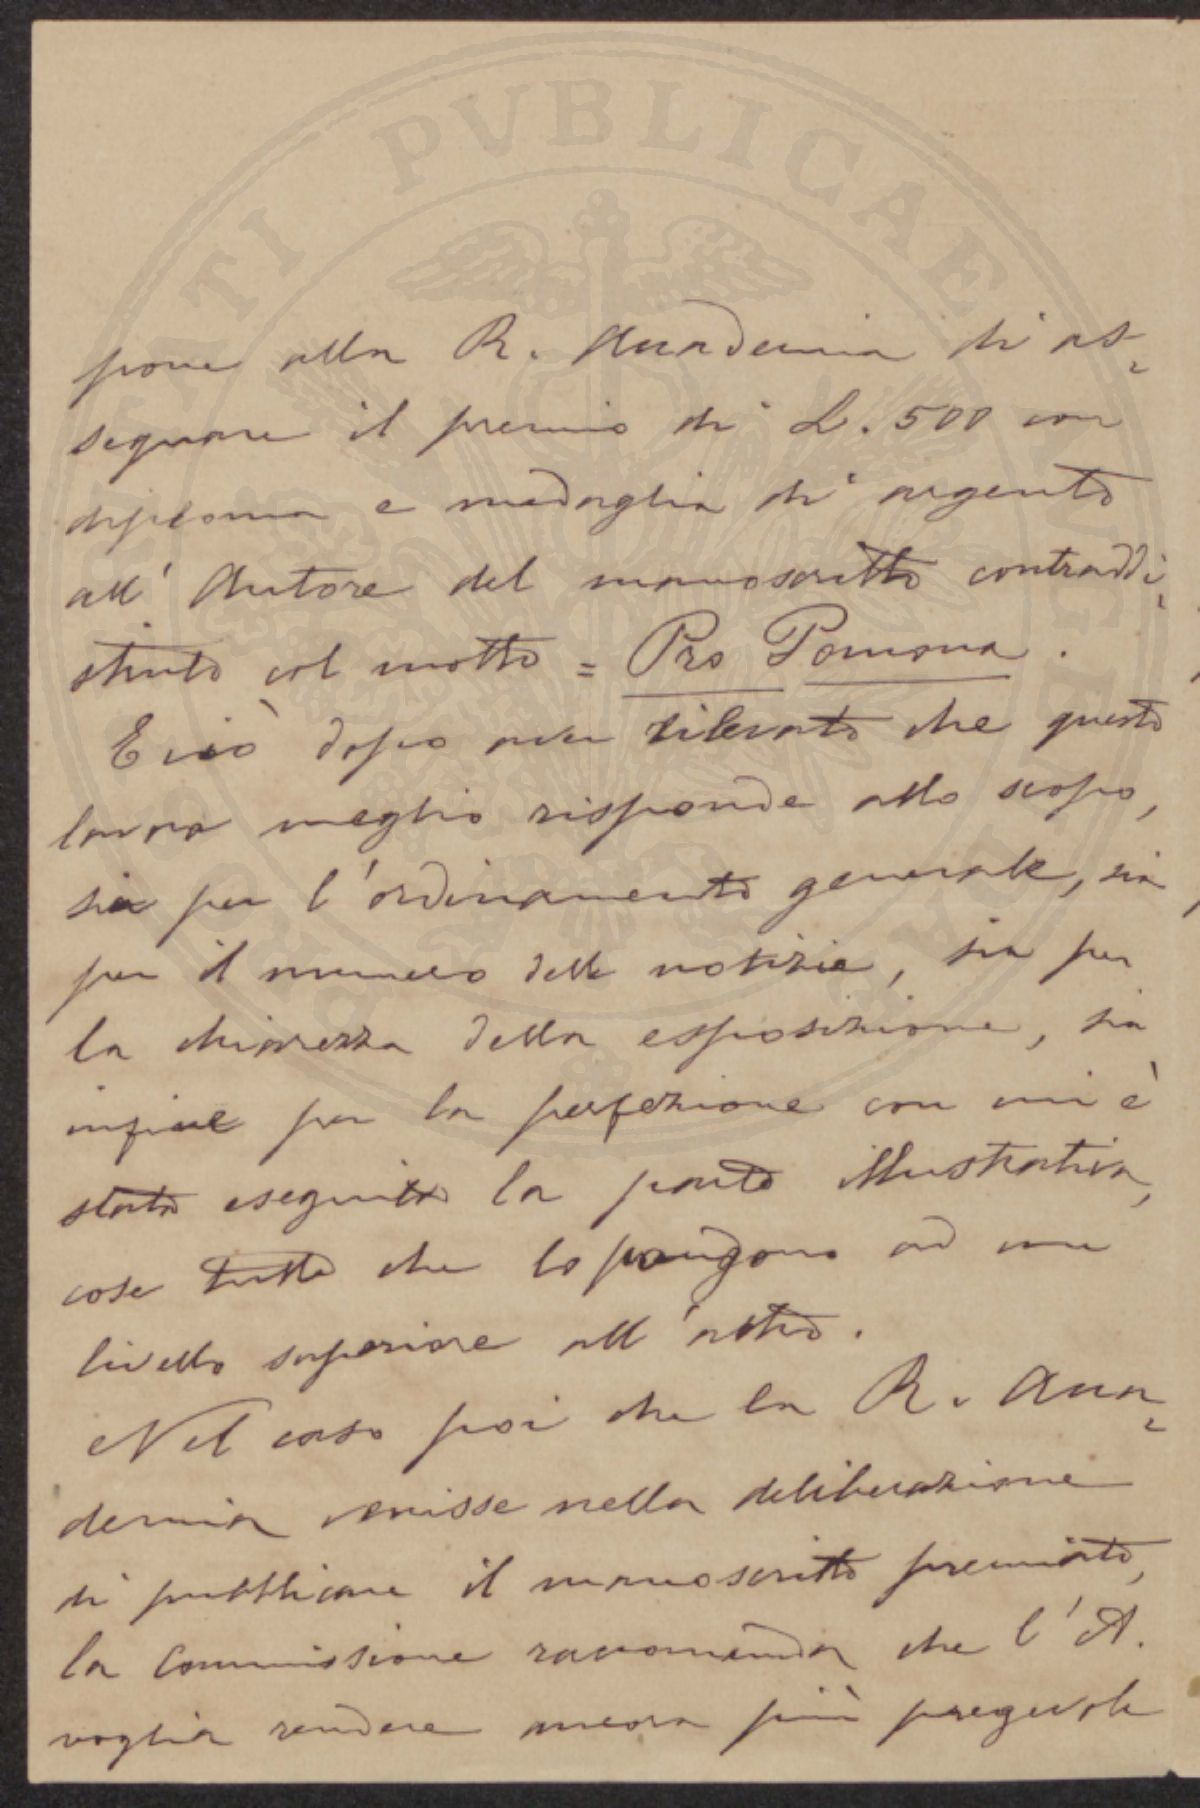 pone alla R. Accademia di as-
segnare il premio di L. 500 con
diploma e medaglia di argento
all' Autore del manoscritto contraddi-
stinto col motto = Pro Pomona.
E ciò dopo aver rilevato che questo
lavoro meglio risponde allo scopo,
sia per l'ordinamento generale, sia
per il numero delle notizie, sia per
la chiarezza della esposizione, sia
infine per la perfezione con cui è
stata eseguita la parte illustrativa,
cose tutte che lo pongono ad un
livello superiore all'altro.
Nel caso poi che la R. Acca-
demia venisse nella deliberazione
di pubblicare il manoscritto premiato,
la Commissione raccomanda che l'A.
voglia rendere ancora più pregevole